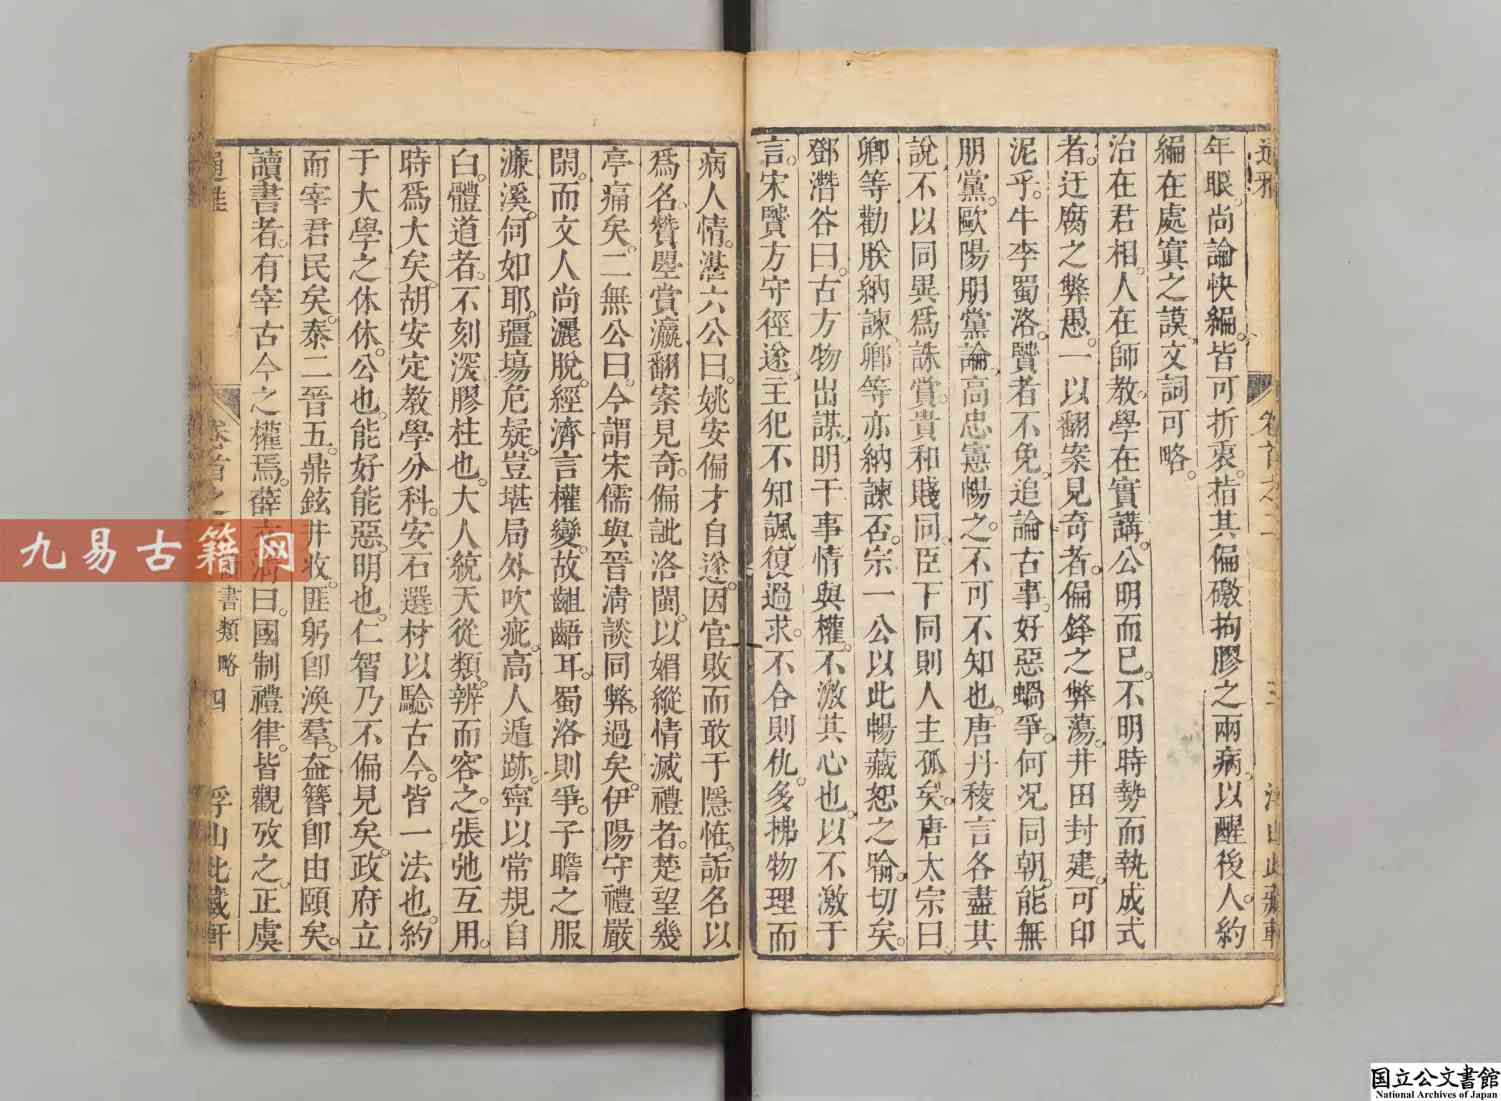 年眼。尚論快編。皆可折衷。指其偏礉拘膠之兩病。以醒後人。約
編在處寘之謨。文詞可略。
治在君相。人在師教。學在實講。公明而已。不明時勢而執成式
者。迂腐之弊愚。一以翻案見奇者。偏鋒之弊蕩。井田封建。可印
泥乎。牛李蜀洛。贒者不免。追論古事。好惡蝸爭。何况同朝。能無
朋黨。歐陽朋黨論。高忠憲暢之。不可不知也。唐丹稜言各盡其
說。不以同異爲誅賞。貴和賤同。臣下同則人主孤矣。唐太宗曰。
卿等勸朕納諫。卿等亦納諫否。宗一公以此暢藏恕之喻。切矣。
鄧潛谷曰。古方物出謀。明干事情與權。不激其心也。以不激于
言。宋贒方守徑遂。主犯不知諷。復過求。不合則仇。多拂物理而
病人情。湛六公曰。姚安偏才自遂。因官敗而敢于隱怪。詬名以
爲名。贊曌賞瀛。翻案見奇。偏訿洛閩。以媚縱情滅禮者。楚望幾
亭痛矣。二無公曰。今謂宋儒與晉清談同弊。過矣。伊陽守禮嚴
閑。而文人尚灑脫。經濟言權變。故齟齬耳。蜀洛則爭。子瞻之服
濂溪。何如耶。疆場危疑。豈堪局外吹疵。高人遁跡。寧以常規自
白。體道者。不刻深膠柱也。大人統天從類。辨而容之。張弛互用。
時爲大矣。胡安定教學分科。安石選材以騐古今。皆一法也。約
于大學之休休。公也。能好能惡。明也。仁智乃不偏見矣。政府立
而宰君民矣。泰二晉五。鼎鉉井收。匪躬卽渙羣。盍簪卽由頤矣。
讀書者。有宰古今之權焉。薛文清曰。國制禮律。皆觀攷之。正虞
通雅 卷首之二 讀書類略 四 浮山此藏軒
九易古籍网
国立公文書館
National Archives of Japan